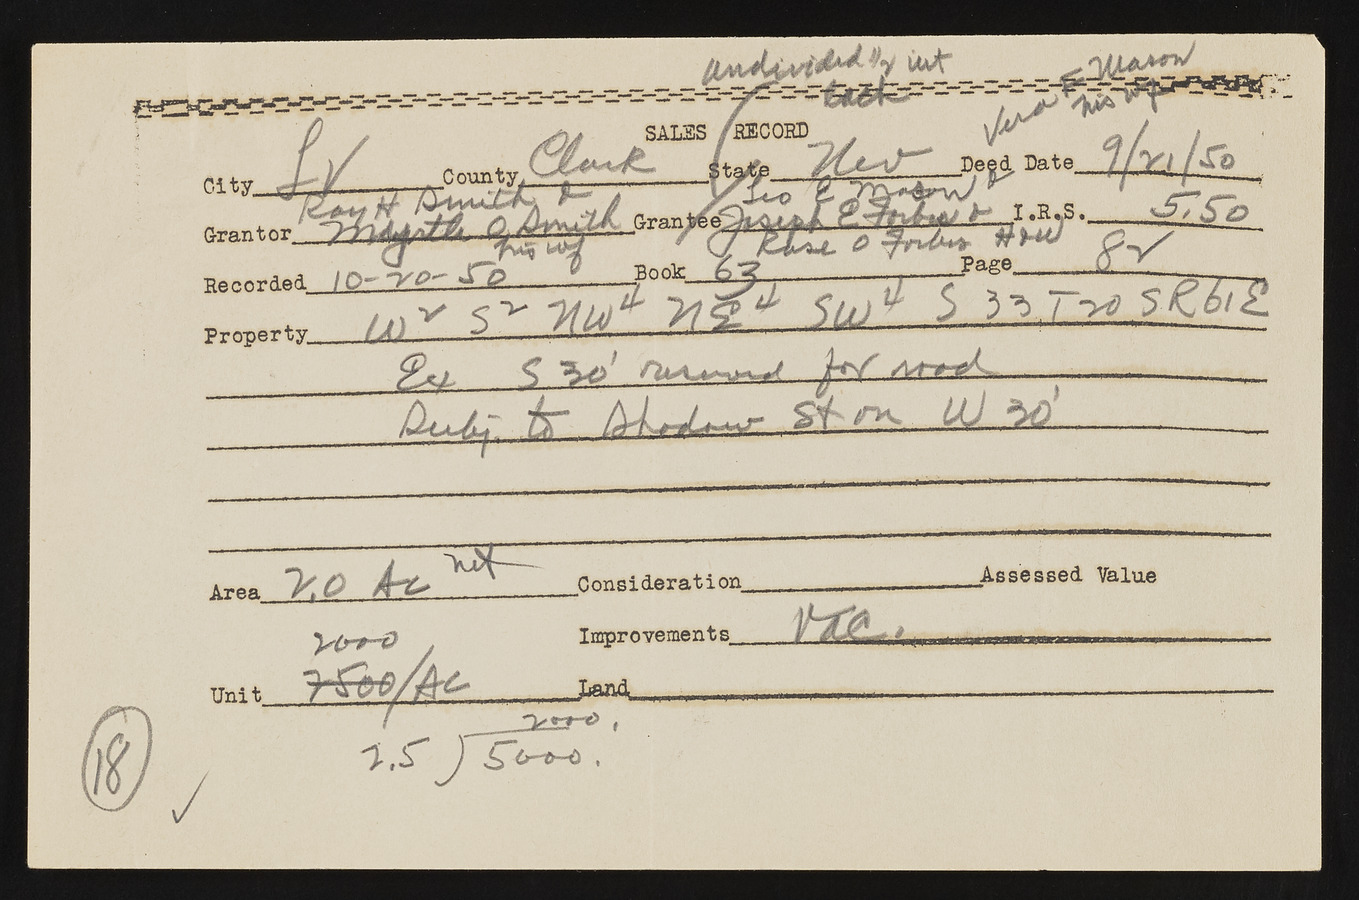 undivided 1/2 int
each
Vera F Mason
his wf
SALES RECORD
City LV County Clark State Nev Deed Date 9/21/50
Ray H Smith &
Geo E Mason &
Grantor Myrtle O Smith Grantee Joseph E Forbes & I.R.S. 5.50
his wf
Rose O Forbes H&W
Recorded 10-20-50 Book 63 Page 82
Property W2 S2 NW4 NE4 SW4 S 33 T 20 S R 61 E
Ex S 30' reserved for road
Subj. to Shadow St on W 30'
Area 2.0 Ac net Consideration Assessed Value
2000
Improvements Vac.
Unit 7500/Ac Land
2000.
2.5 ) 5000.
18
✓